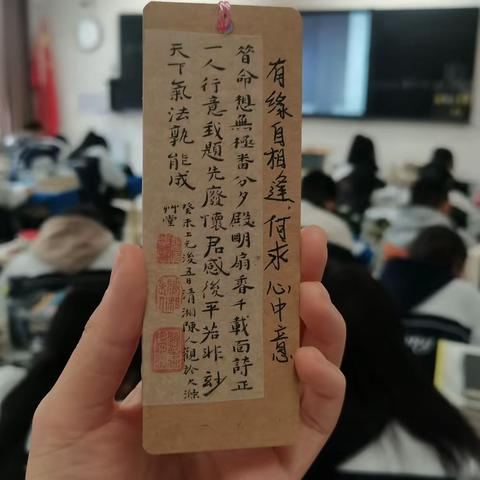 有缘自相逢、何求心中意
暂命想無極番分夕殿明扇香千載面詩正
一人行意我題先廢懷君感後平若非刻
天下氣法孰能成
癸未上元後五日清湘陳人觀於大滌
艸堂